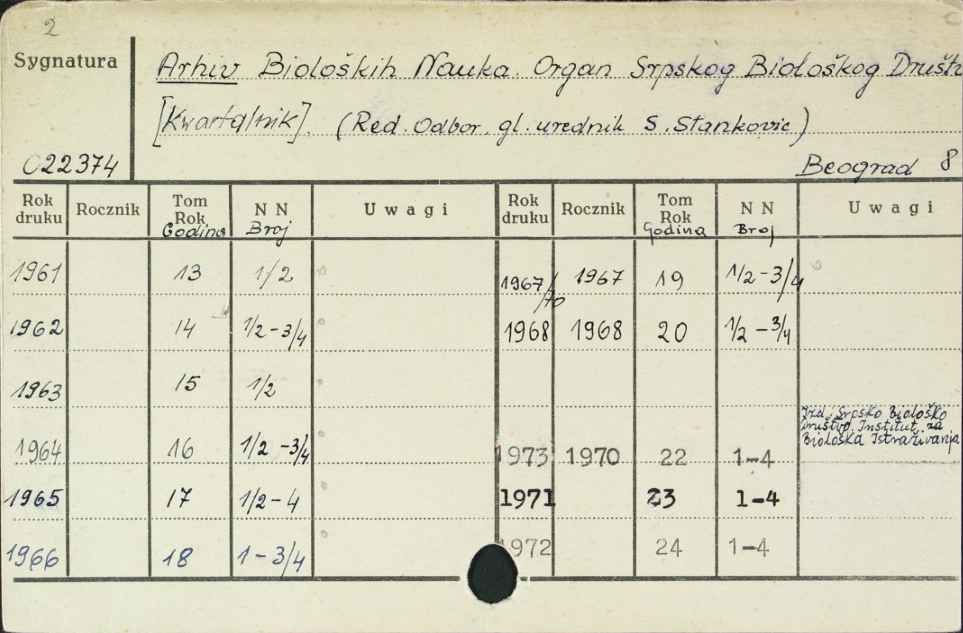 2
Sygnatura
Arhiv Bioloških Nauka. Organ Srpskog Biološkog Društ
[Kwartalnik]. (Red. Odbor. gl. urednik S. Stankovic)
022374
Beograd 8
Rok druku Rocznik Tom Rok Godina N N Broj Uwagi Rok druku Rocznik Tom Rok Godina N N Broj Uwagi
1961 13 1/2 1967/70 1967 19 1/2-3/4
1962 14 1/2-3/4 1968 1968 20 1/2-3/4
1963 15 1/2
Izd. Srpsko Biološko
Društvo. Institut za
Biološka Istraživanja
1964 16 1/2-3/4 1973 1970 22 1-4
1965 17 1/2-4 1971 23 1-4
1966 18 1-3/4 1972 24 1-4